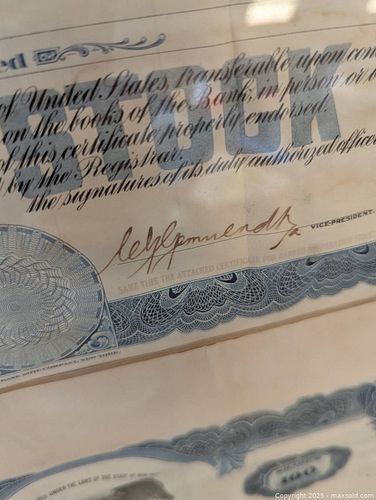 ed
STOCK
of United States, transferable upon
on the books of the Bank in person or
of this certificate properly endorsed
by the Registrar.
the signatures of its duly authorized officer
VICE-PRESIDENT.
SAME TIME THE ATTACHED CERTIFICATE FOR
BANK NOTE COMPANY, NEW YORK.
UNDER THE LAWS OF THE STATE OF
100
Copyright 2025 - maxsold.com